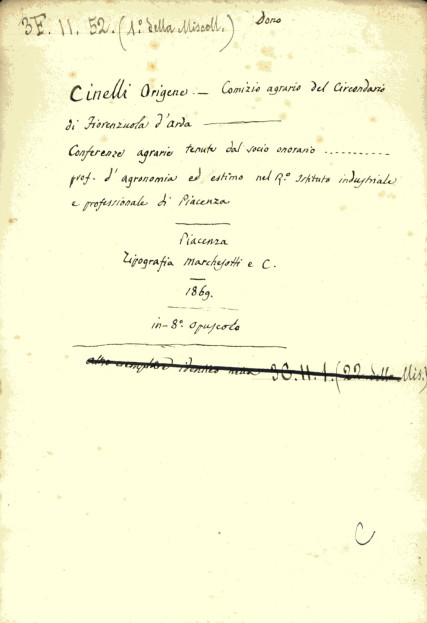 3E. 11. 52. (1º. della Miscell.) Dono
Cinelli Origene. — Comizio agrario del Circondario
di Fiorenzuola d'Arda ———
Conferenze agrarie tenute dal socio onorario ..........
prof. d'agronomia ed estimo nel R.º Istituto industriale
e professionale di Piacenza
Piacenza
Tipografia Marchesotti e C.
1869.
in-8º. opuscolo
altro esemplare identico nella 3C. 11. 1. (22 della Mis.)
C